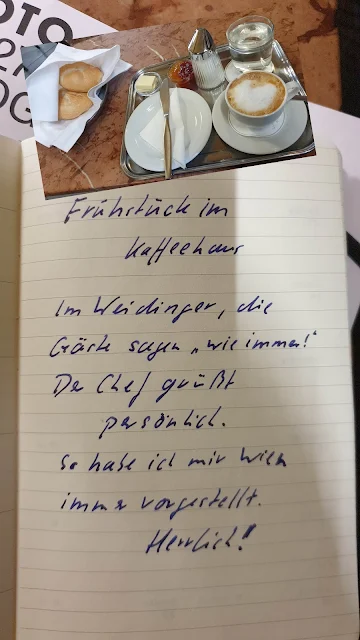 OTO
Frühstück im
Kaffeehaus
Im Weidinger, die
Gäste sagen „wie immer!"
Der Chef grüßt
persönlich.
So habe ich mir Wien
immer vorgestellt.
Herrlich!